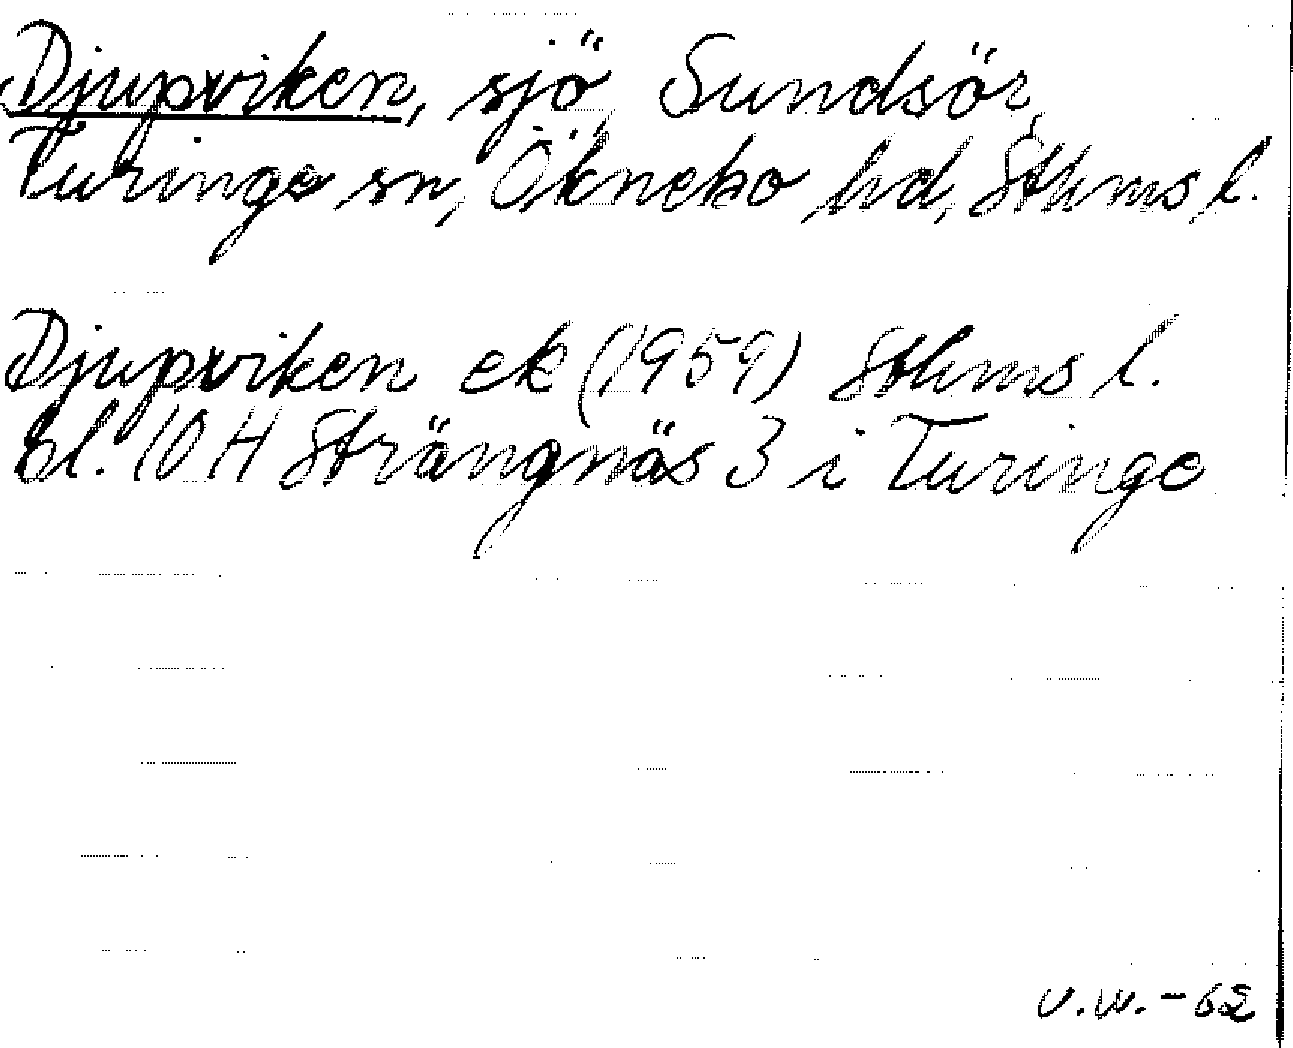 Djupviken, sjö, Sundsör,
Turinge sn, Öknebo hd, Sthms l.
Djupviken ek (1959) Sthms l.
bl. 10 H Strängnäs 3 i Turinge
v.w. - 62